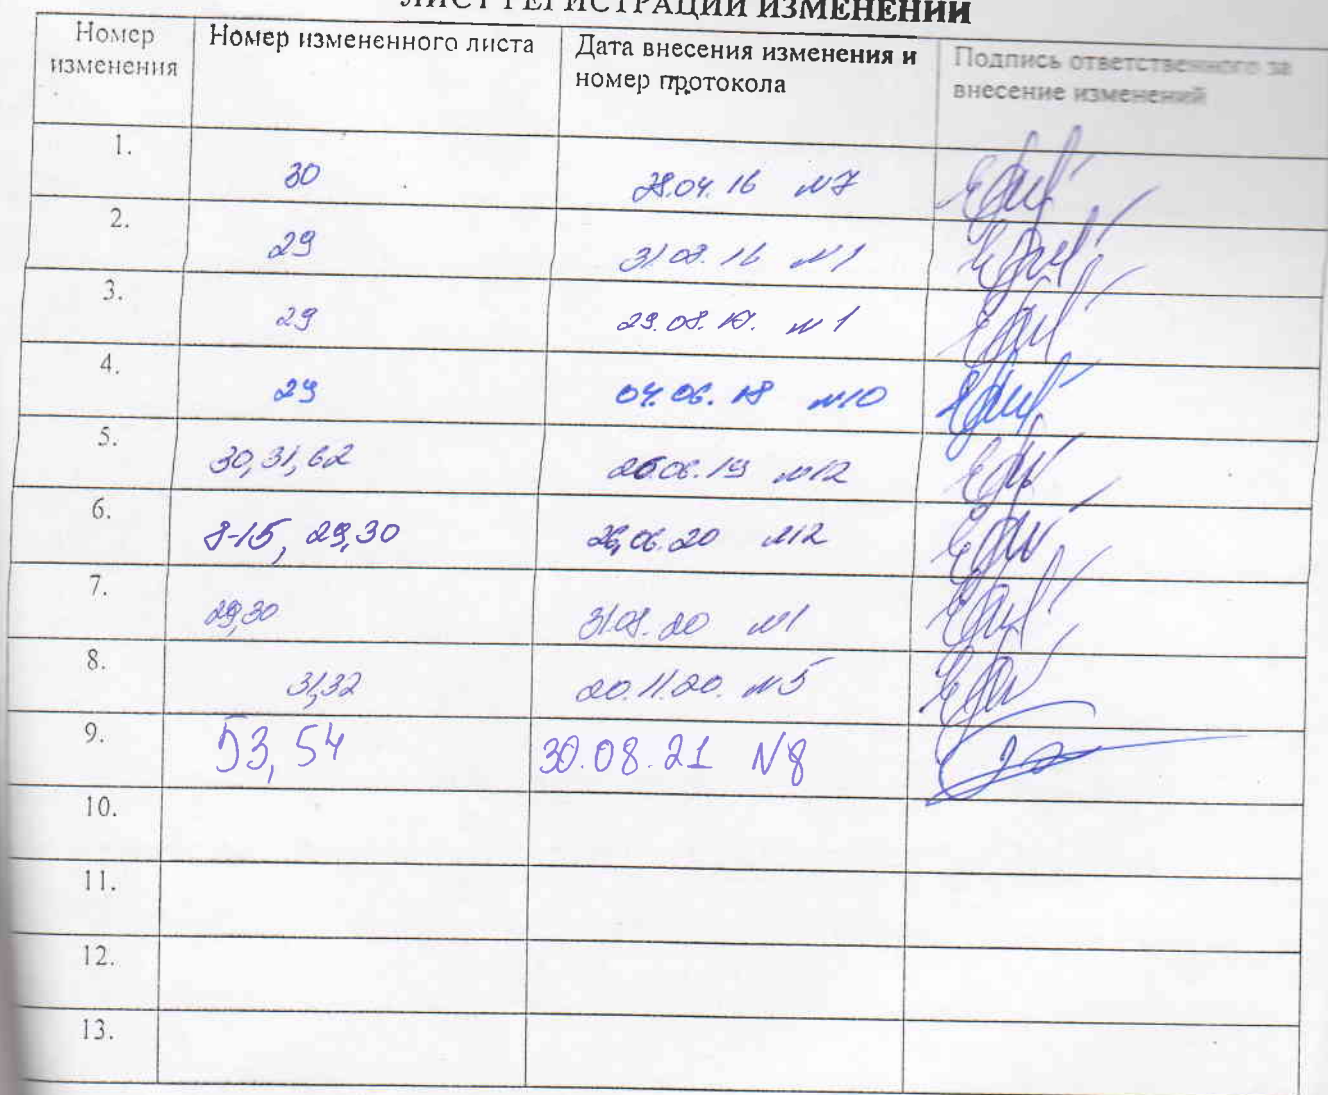 ЛИСТ РЕГИСТРАЦИИ ИЗМЕНЕНИЙ
Номер изменения
Номер измененного листа
Дата внесения изменения и номер протокола
Подпись ответственного за внесение изменений
1.
30
28.04.16 №7
2.
29
31.08.16 №1
3.
29
29.08.17. №1
4.
29
04.06.18 №10
5.
30,31,62
26.06.19 №12
6.
8-15, 29,30
26.06.20 №12
7.
29,30
31.08.20 №1
8.
31,32
20.11.20. №5
9.
53, 54
30.08.21 №8
10.
11.
12.
13.